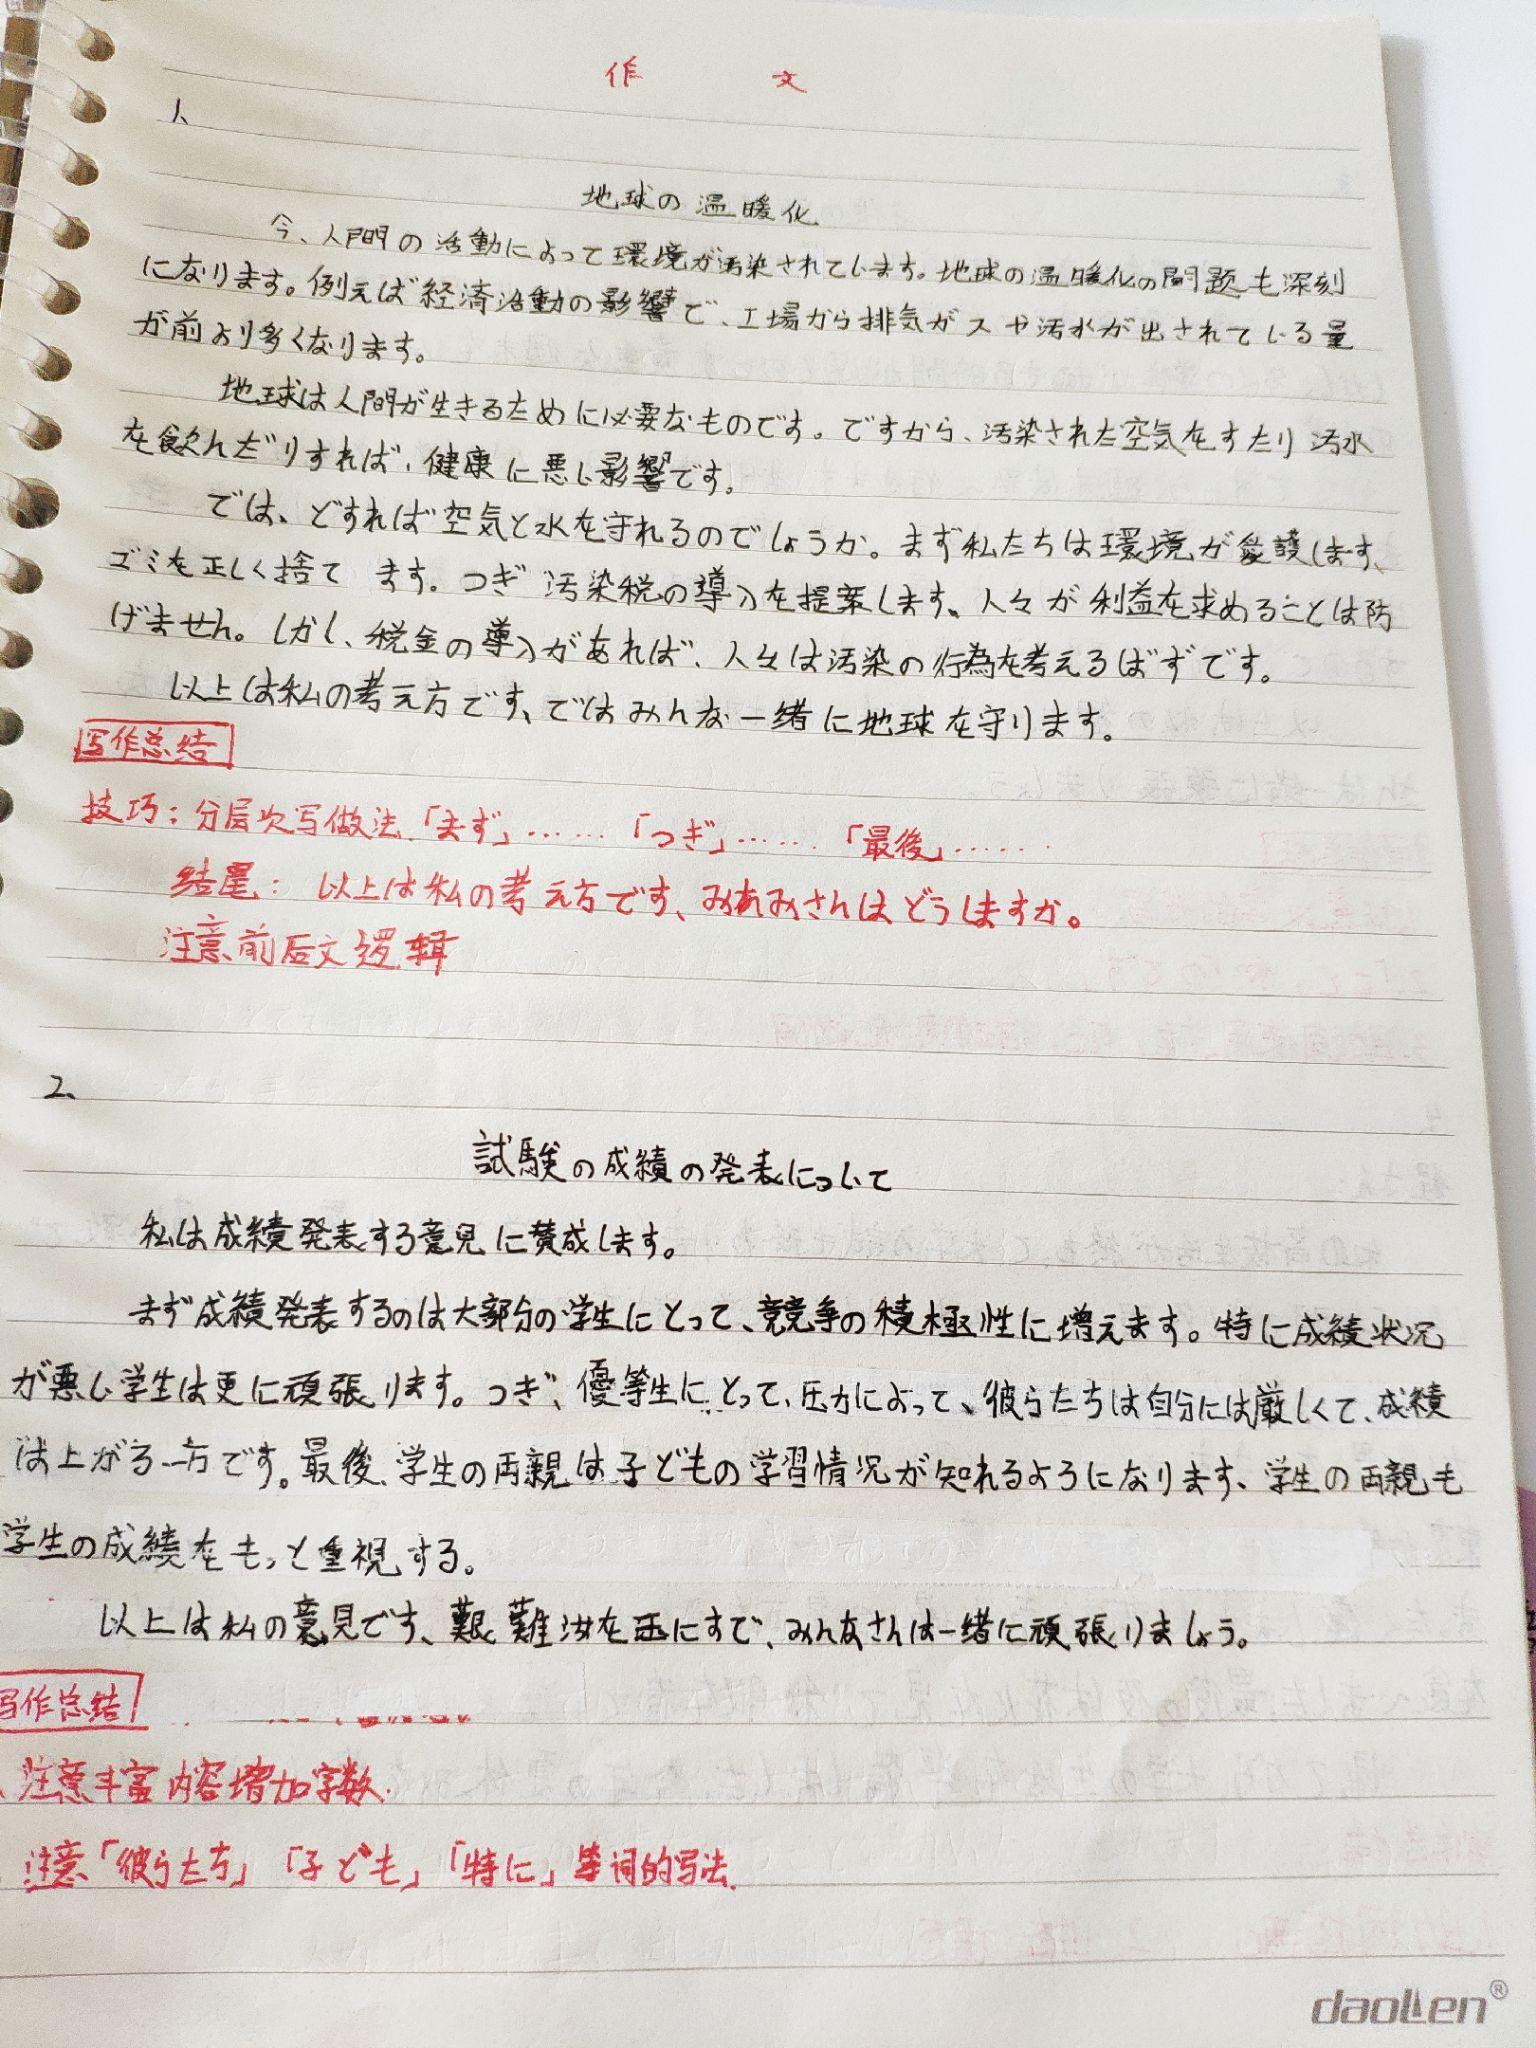 作 文
1、
地球の温暖化
今、人間の活動によって環境が汚染されています。地球の温暖化の問題も深刻
になります。例えば経済活動の影響で、工場から排気ガスや汚水が出されている量
が前より多くなります。
地球は人間が生きるために必要なものです。ですから、汚染された空気をすたり汚水
を飲んだりすれば、健康に悪い影響です。
では、どすれば空気と水を守れるのでしょうか。まず私たちは環境が愛護します、
ゴミを正しく捨て ます。つぎ 汚染税の導入を提案します、人々が利益を求めることは防
げません。しかし、税金の導入があれば、人々は汚染の行為を考えるばずです。
以上は私の考え方です、ではみんな一緒に地球を守ります。
写作总结
技巧：分层次写做法「まず」……「つぎ」……「最後」……
结尾：以上は私の考え方です、みあみさんはどうしますか。
注意前后文逻辑
2、
試験の成績の発表について
私は成績発表する意見に賛成します。
まず成績発表するのは大部分の学生にとって、競争の積極性に増えます。特に成績状況
が悪い学生は更に頑張ります。つぎ、優等生にとって、圧力によって、彼らたちは自分には厳しくて、成績
は上がる一方です。最後、学生の両親は子どもの学習情況が知れるようになります、学生の両親も
学生の成績をもっと重視する。
以上は私の意見です、艱難汝を玉にすで、みんなさんは一緒に頑張りましょう。
写作总结
注意丰富内容增加字数.
注意「彼らたち」「子ども」「特に」等词的写法.
daollen®